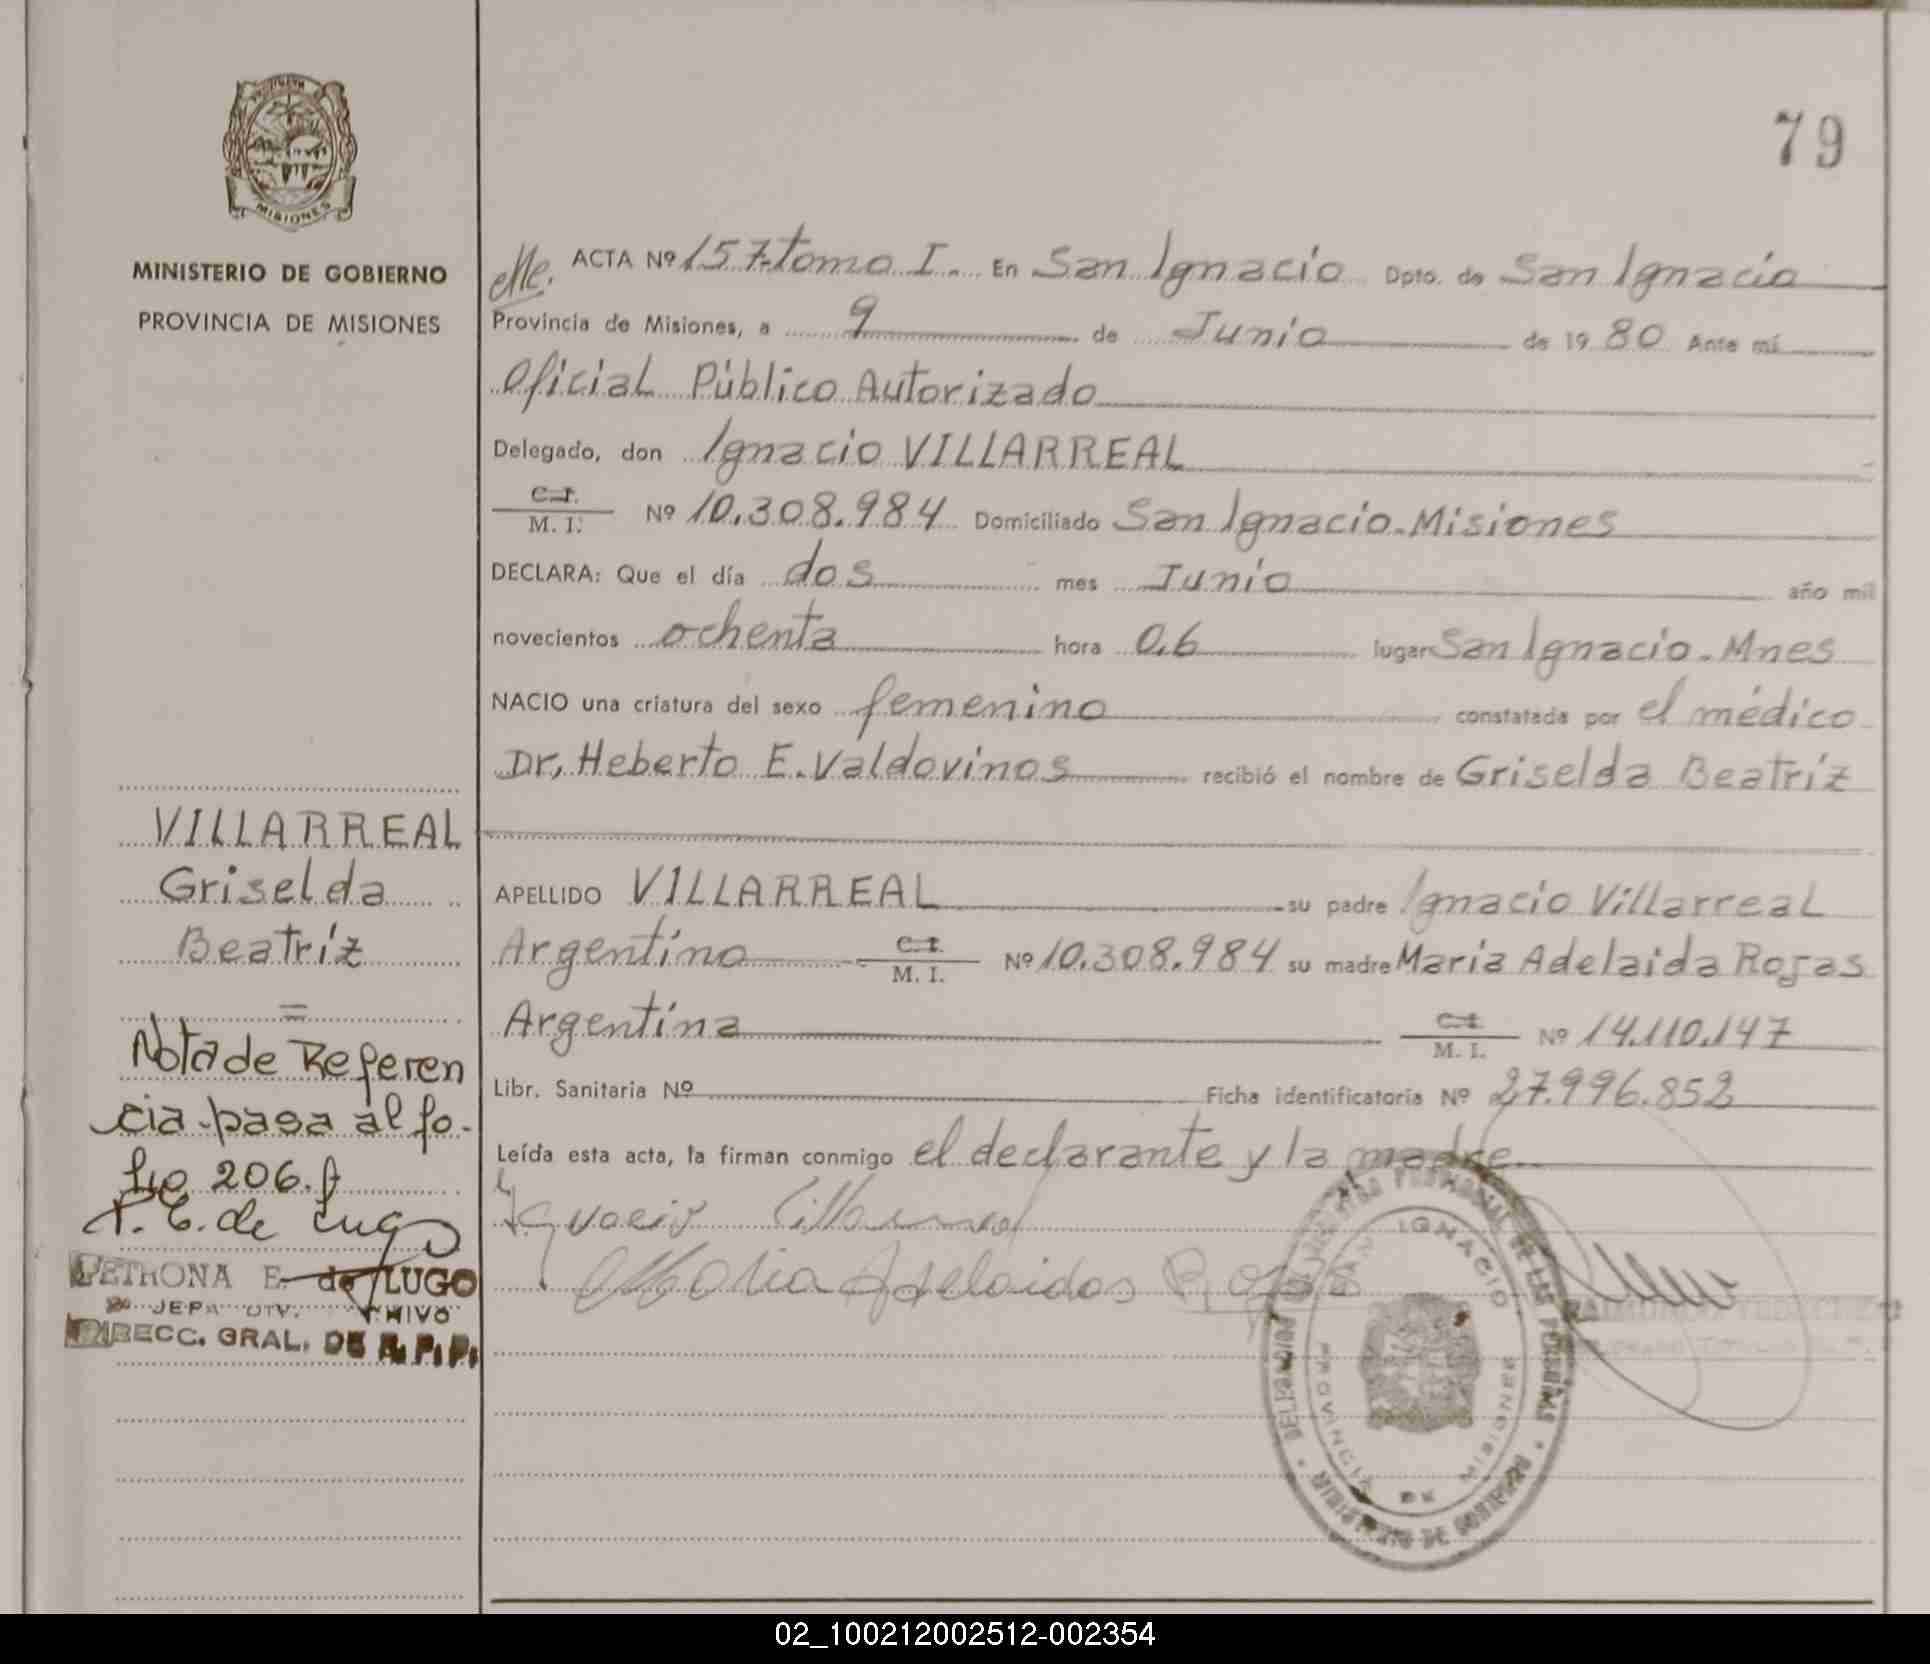 79
MISIONES
MINISTERIO DE GOBIERNO
PROVINCIA DE MISIONES
VILLARREAL
Griselda
Beatríz
=
Nota de Referen
cia-pasa al fo-
lio 206.f
P. E. de Lugo
PETRONA E. de LUGO
DIRECC. GRAL. DE R. P. P.
ACTA Nº 157-tomo I. En San Ignacio Dpto. de San Ignacio
Provincia de Misiones, a 9 de Junio de 1980 Ante mí
Oficial Público Autorizado
Delegado, don Ignacio VILLARREAL
C. I.
M. I. Nº 10.308.984 Domiciliado San Ignacio-Misiones
DECLARA: Que el día dos mes Junio año mil
novecientos ochenta hora 0,6 lugar San Ignacio-Mnes
NACIO una criatura del sexo femenino constatada por el médico
Dr, Heberto E. Valdovinos recibió el nombre de Griselda Beatríz
APELLIDO VILLARREAL su padre Ignacio Villarreal
Argentino C. I. M. I. Nº 10.308.984 su madre María Adelaida Rojas
Argentina C. I. M. I. Nº 14.110.147
Libr. Sanitaria Nº Ficha identificatoria Nº 27.996.852
Leída esta acta, la firman conmigo el declarante y la madre.
Ignacio Villarreal
Maria Adelaida Rojas
SAN IGNACIO
PROVINCIA DE MISIONES
02_100212002512-002354